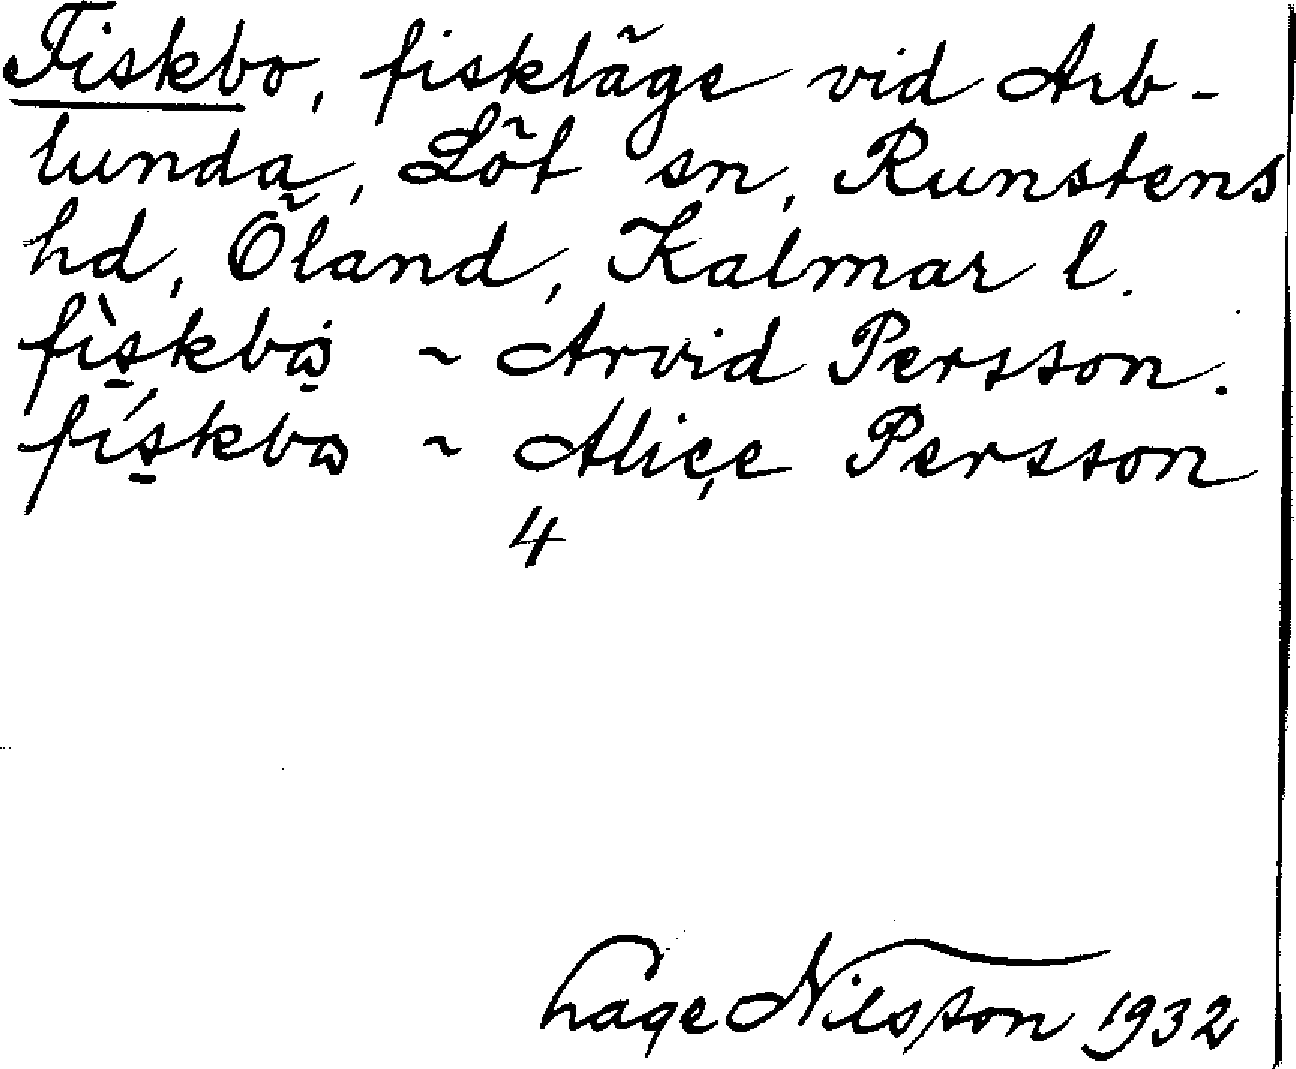 Fiskbo, fiskläge vid Arb-
lunda, Löt sn, Runstens
hd, Öland, Kalmar l.
fìskbω ~ Arvid Persson.
fískbω ~ Alice Persson
4
Lage Nilsson 1932